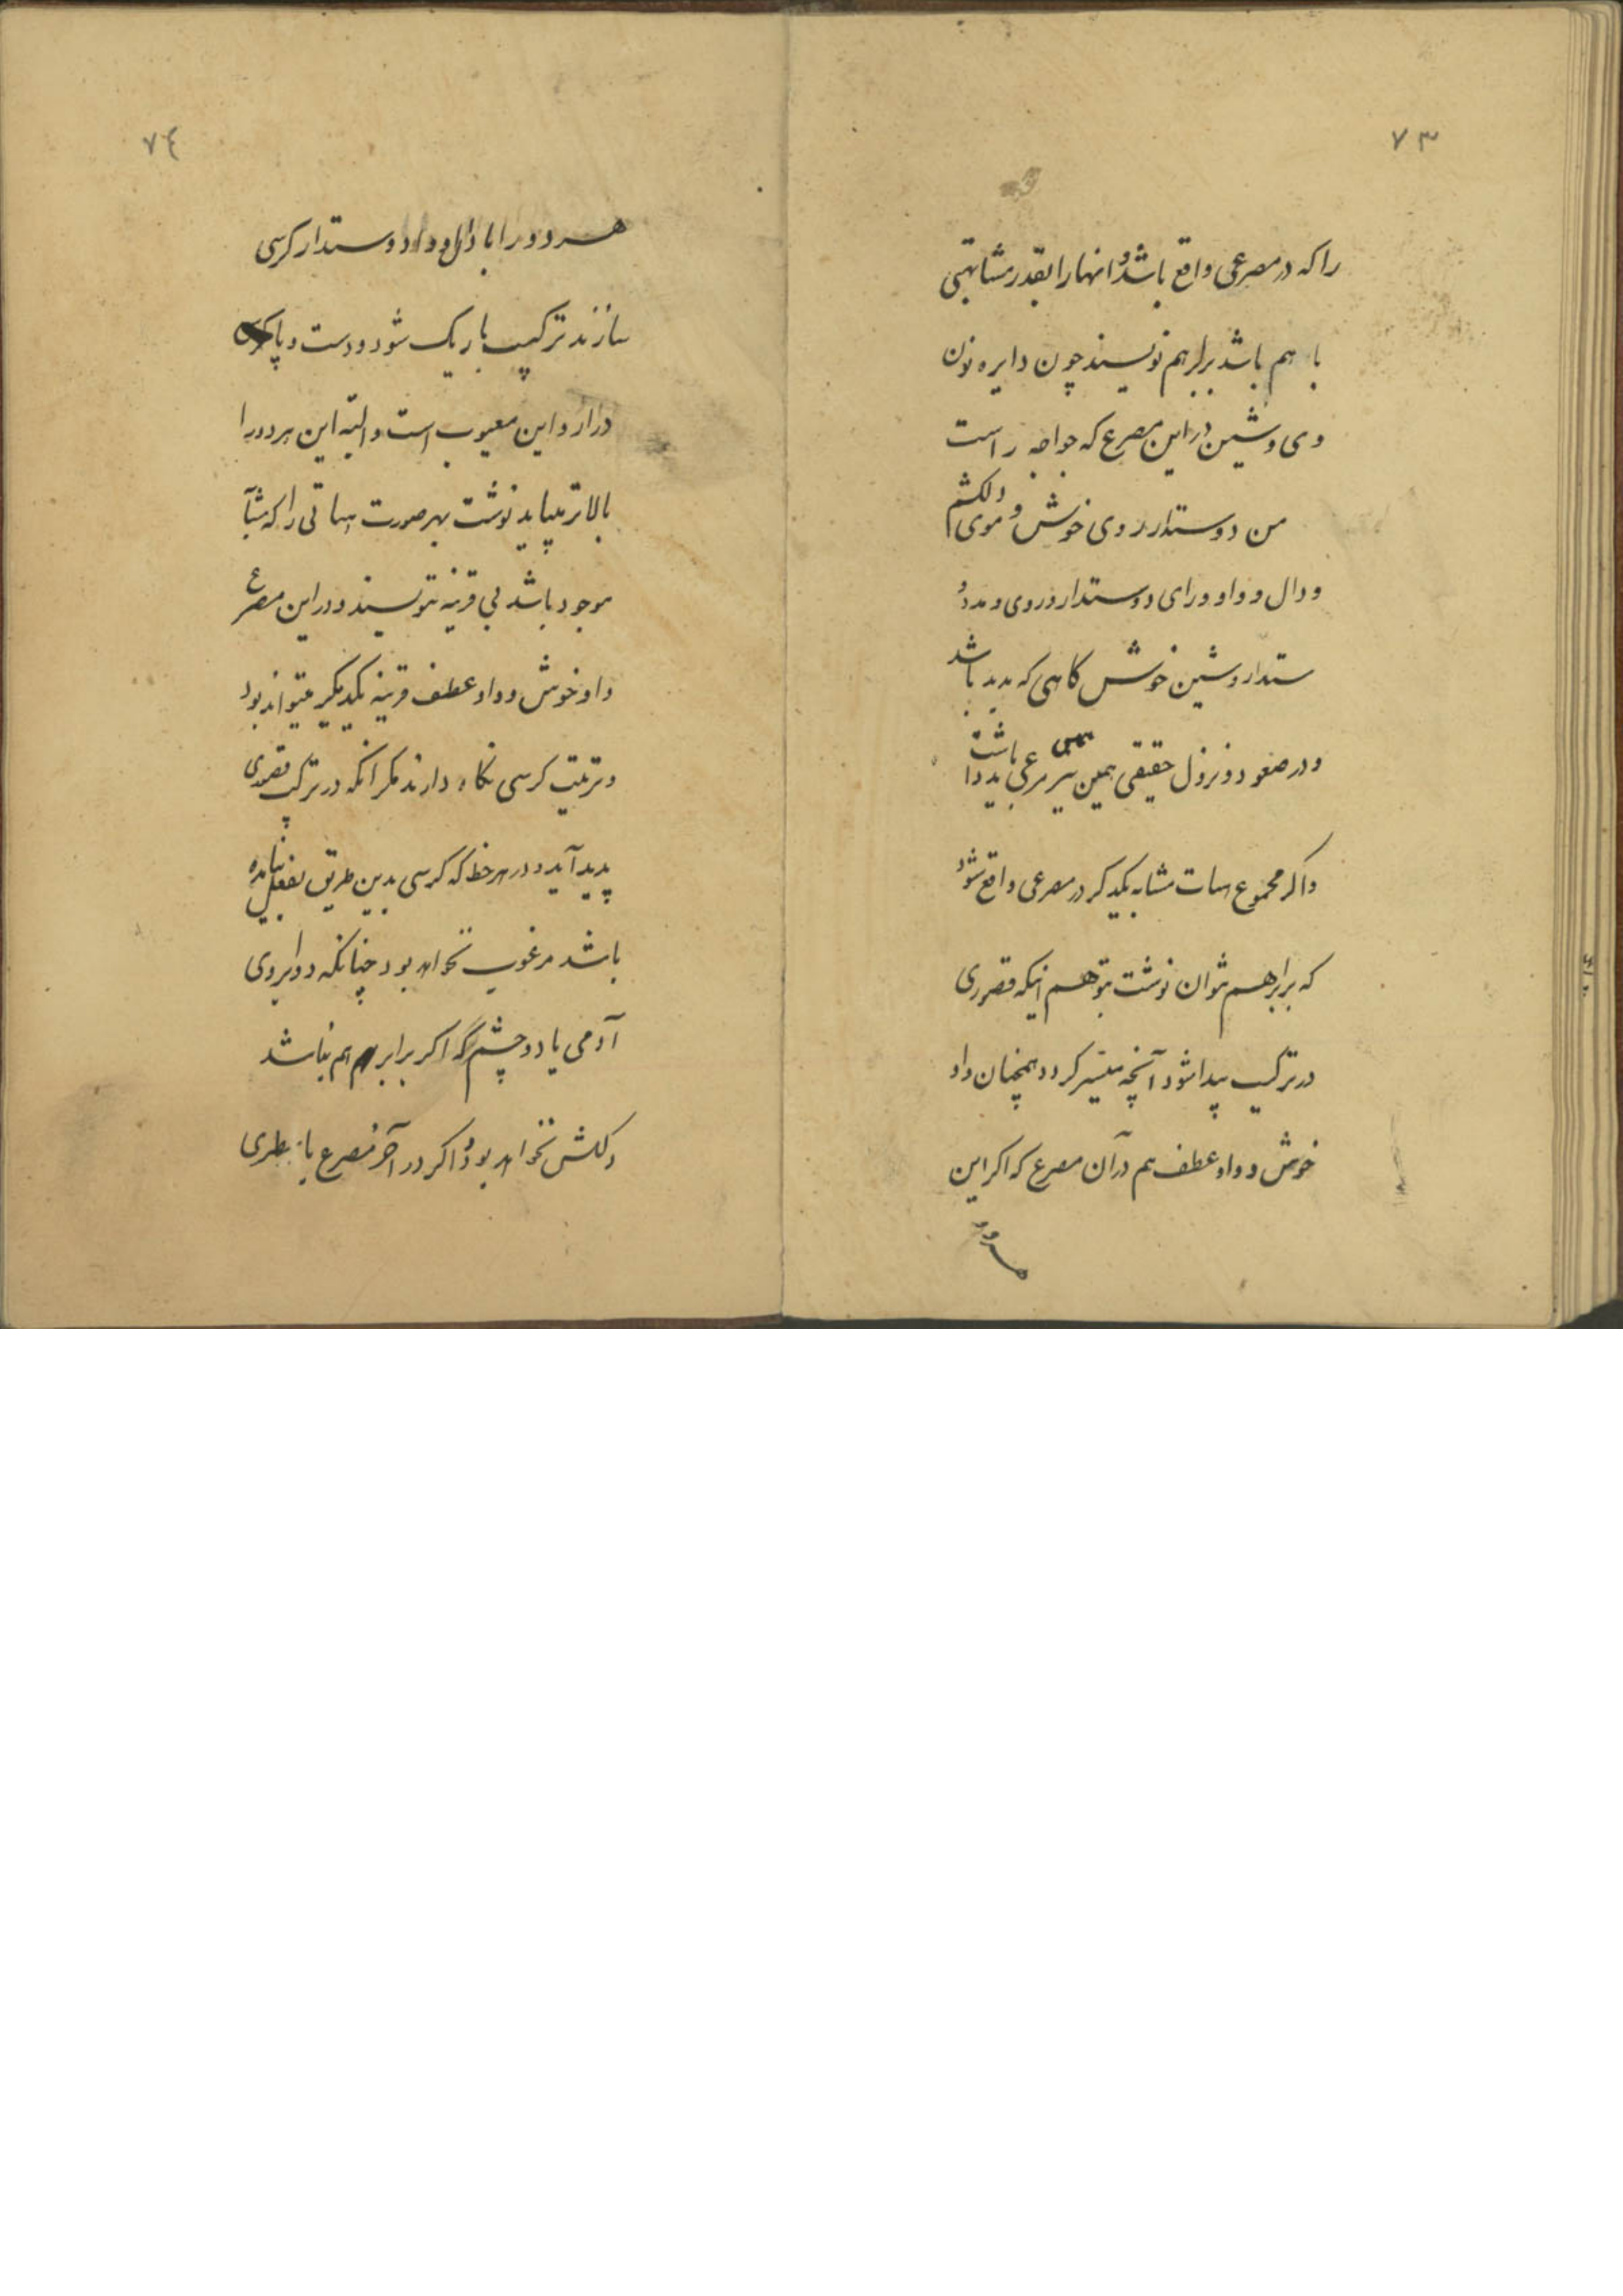 ۷۳
را که در مصرعی واقع باشد و انها را بقدر مشابهتی
با هم باشد برابر هم نویسند چون دایره نون
وی و شین در این مصرع که خواجه راست
من دوستدار روی خوش و موی دلکشم
و دال و واو و رای دوستدار و روی و مد دو
ستدار و شین خوش کاهی که مدید باشد
و در صعود و نزول حقیقی همین مرعی باید داشت
و اکر مجموع هیات مشابه یکدیکر در مصرعی واقع شود
که برابر هم نتوان نوشت بتوهم اینکه قصوری
در ترکیب پیدا شود آنچه میسر کردد همچنان واو
خوش و واو عطف هم در آن مصرع که اکر این
هر دو
۷٤
هر دو را با دال و واو دوستدار کرسی
سازند ترکیب باریک شود و دست و پا
دراز و این معیوب است و البته این هر دو را
بالاتر میباید نوشت بهر صورت هیاتی را که مشابه
موجود باشد بی قرینه ننویسند و در این مصرع
واو خوش و واو عطف قرینه یکدیکر میتواند بود
و ترتیب کرسی نکاه دارند مکر انکه در ترکیب قصوری
پدید آید و در هر خط که کرسی بدین طریق بفعل نیامده
باشد مرغوب نخواهد بود چنانکه دو ابروی
آدمی یا دو چشم که اکر برابر هم نباشد
دلکش نخواهد بود و اکر در آخر مصرع یا سطری